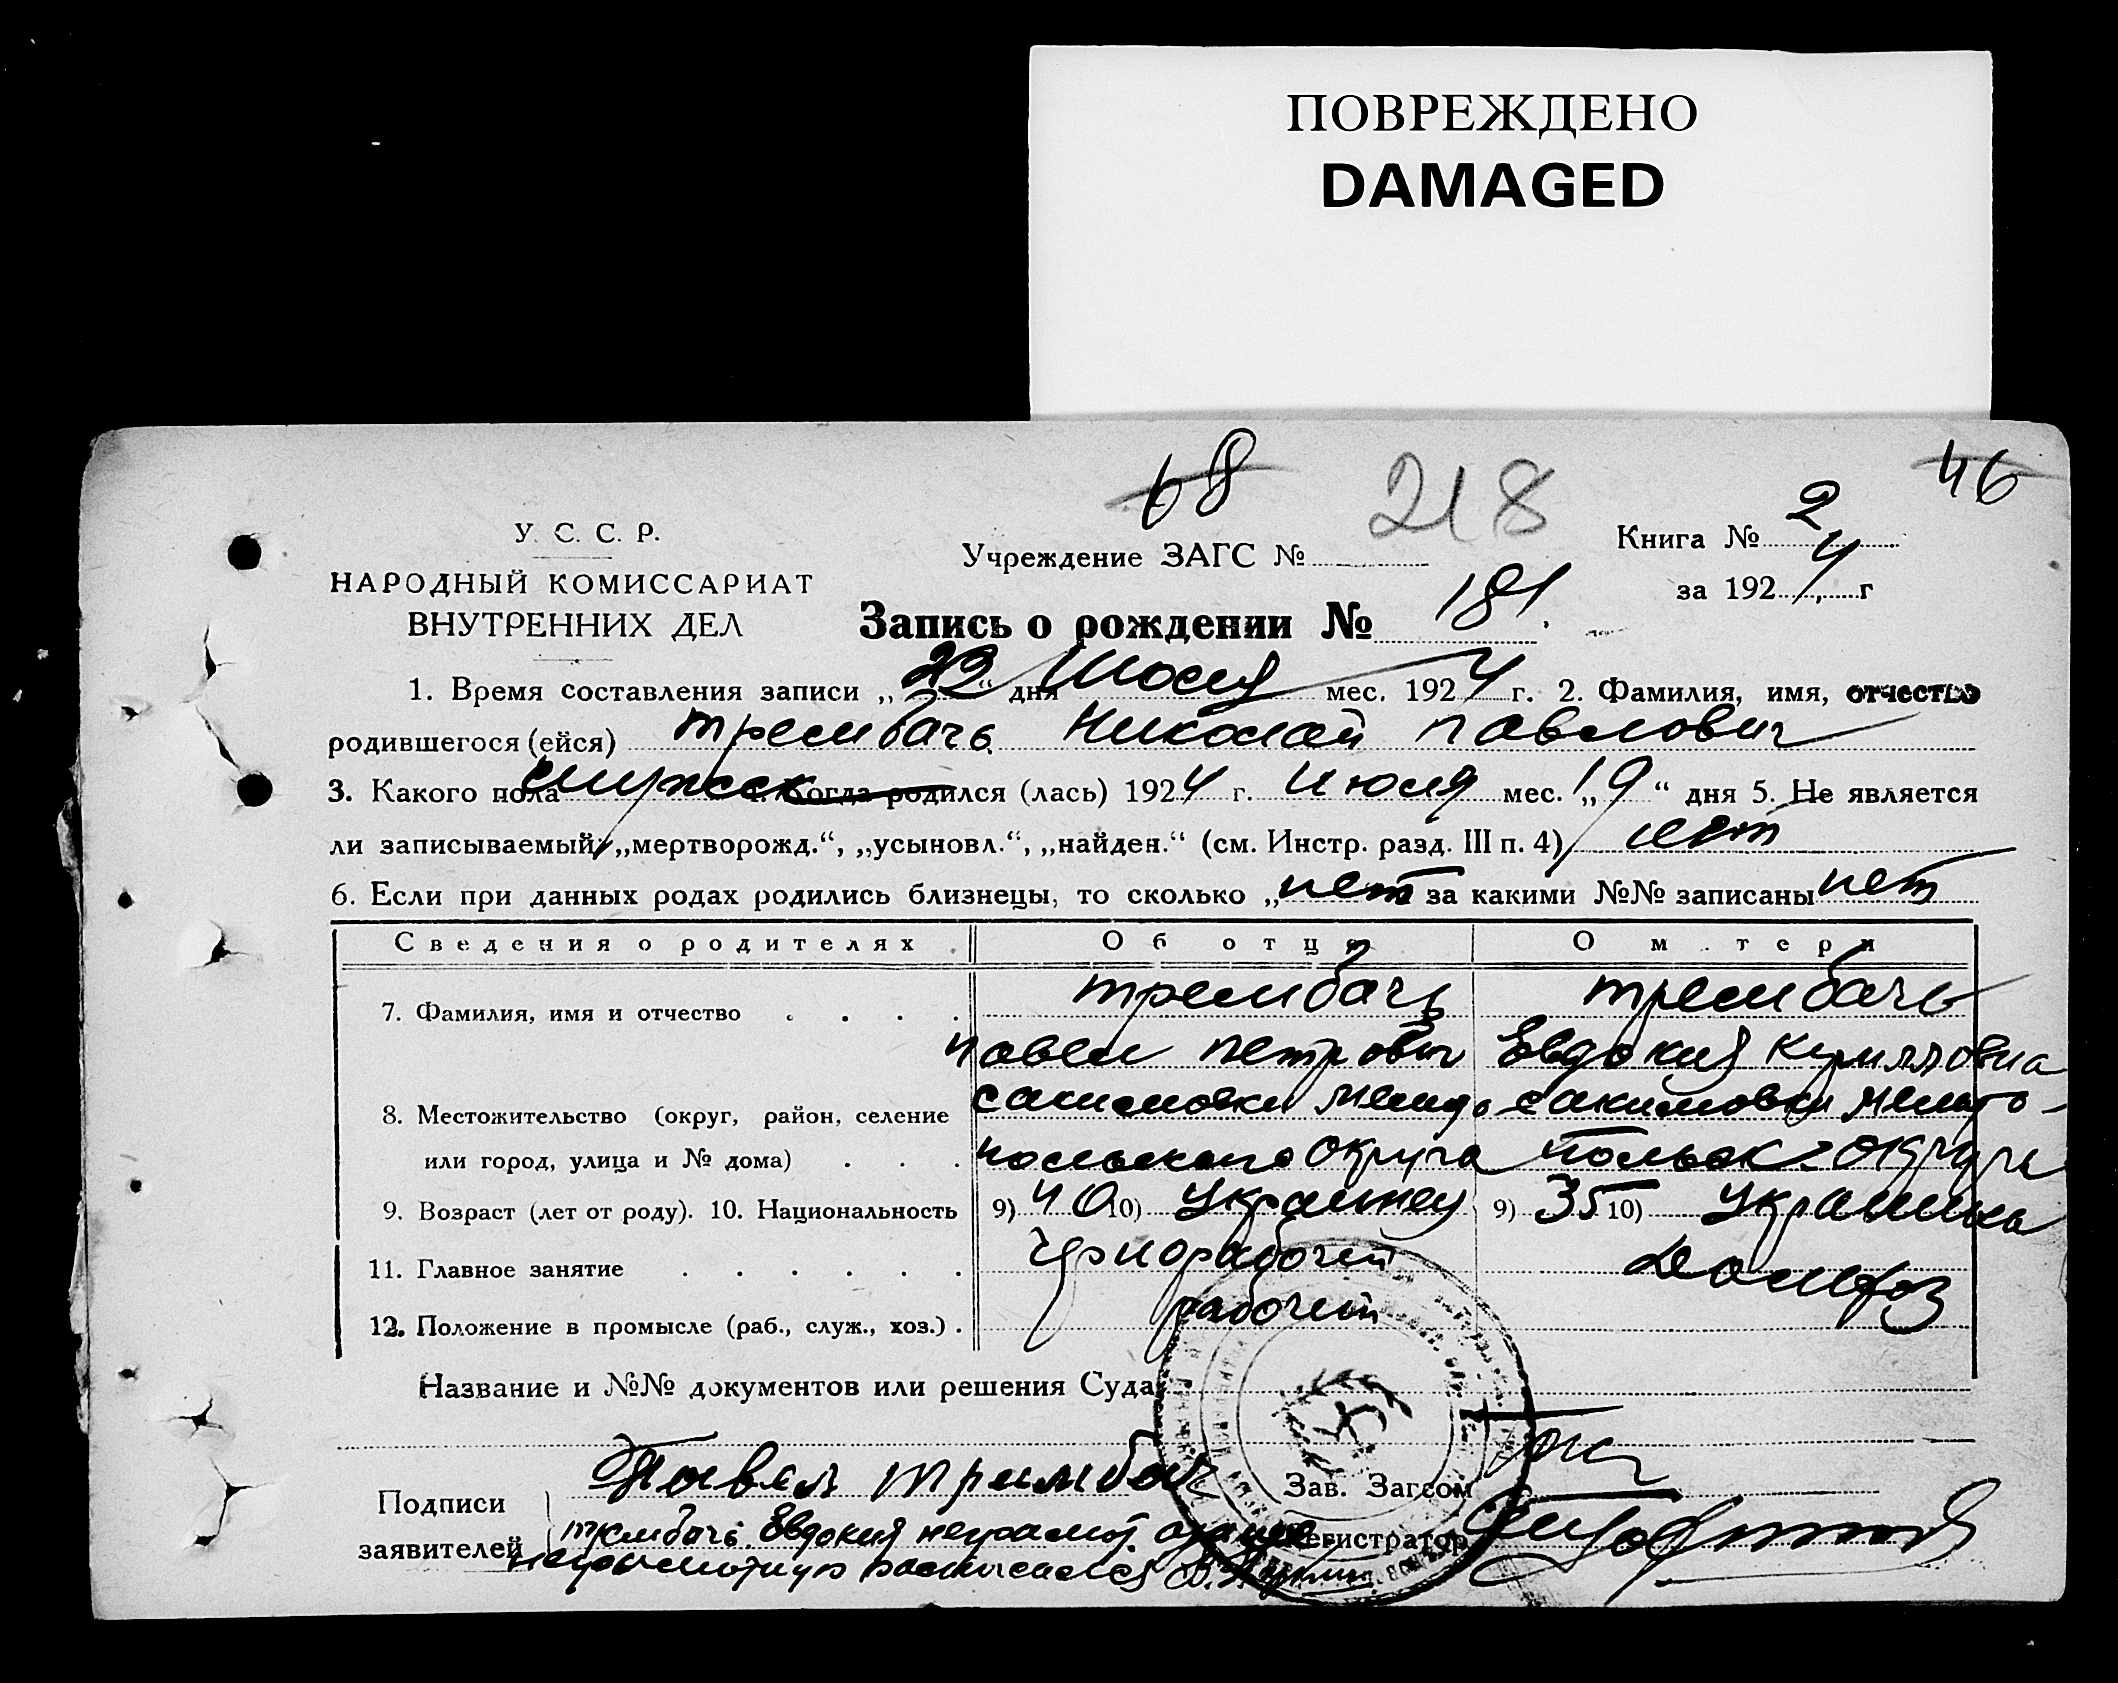 ПОВРЕЖДЕНО
DAMAGED
68 218 46
У. С. С. Р.
НАРОДНЫЙ КОМИССАРИАТ
ВНУТРЕННИХ ДЕЛ
Учреждение ЗАГС №
Книга № 2
за 1924 г
Запись о рождении № 181.
1. Время составления записи „22“ дня Июля мес. 1924 г. 2. Фамилия, имя, отчество
родившегося (ейся) Трембачь Николай Павлович
3. Какого пола мужск 4. Когда родился (лась) 1924 г. Июля мес. „19“ дня 5. Не является
ли записываемый „мертворожд.“, „усыновл.“, „найден.“ (см. Инстр. разд. III п. 4) нет
6. Если при данных родах родились близнецы, то сколько „нет за какими №№ записаны нет
Сведения о родителях Об отце О м тери
7. Фамилия, имя и отчество Трембачь Трембачь
Павел Петрович Евдокия Кирилловна
8. Местожительство (округ, район, селение Мелито-
или город, улица и № дома) польского округа польск. округа
9. Возраст (лет от роду). 10. Национальность 9) 40 10) Украинец 9) 35 10) Украинка
11. Главное занятие Чернорабочий Домхоз
12. Положение в промысле (раб., служ., хоз.) рабочий
Название и №№ документов или решения Суда
Подписи Павел Трембач Зав. Загсом
заявителей Трембачь Евдокия неграмот. Регистратор
неграмотную расписался